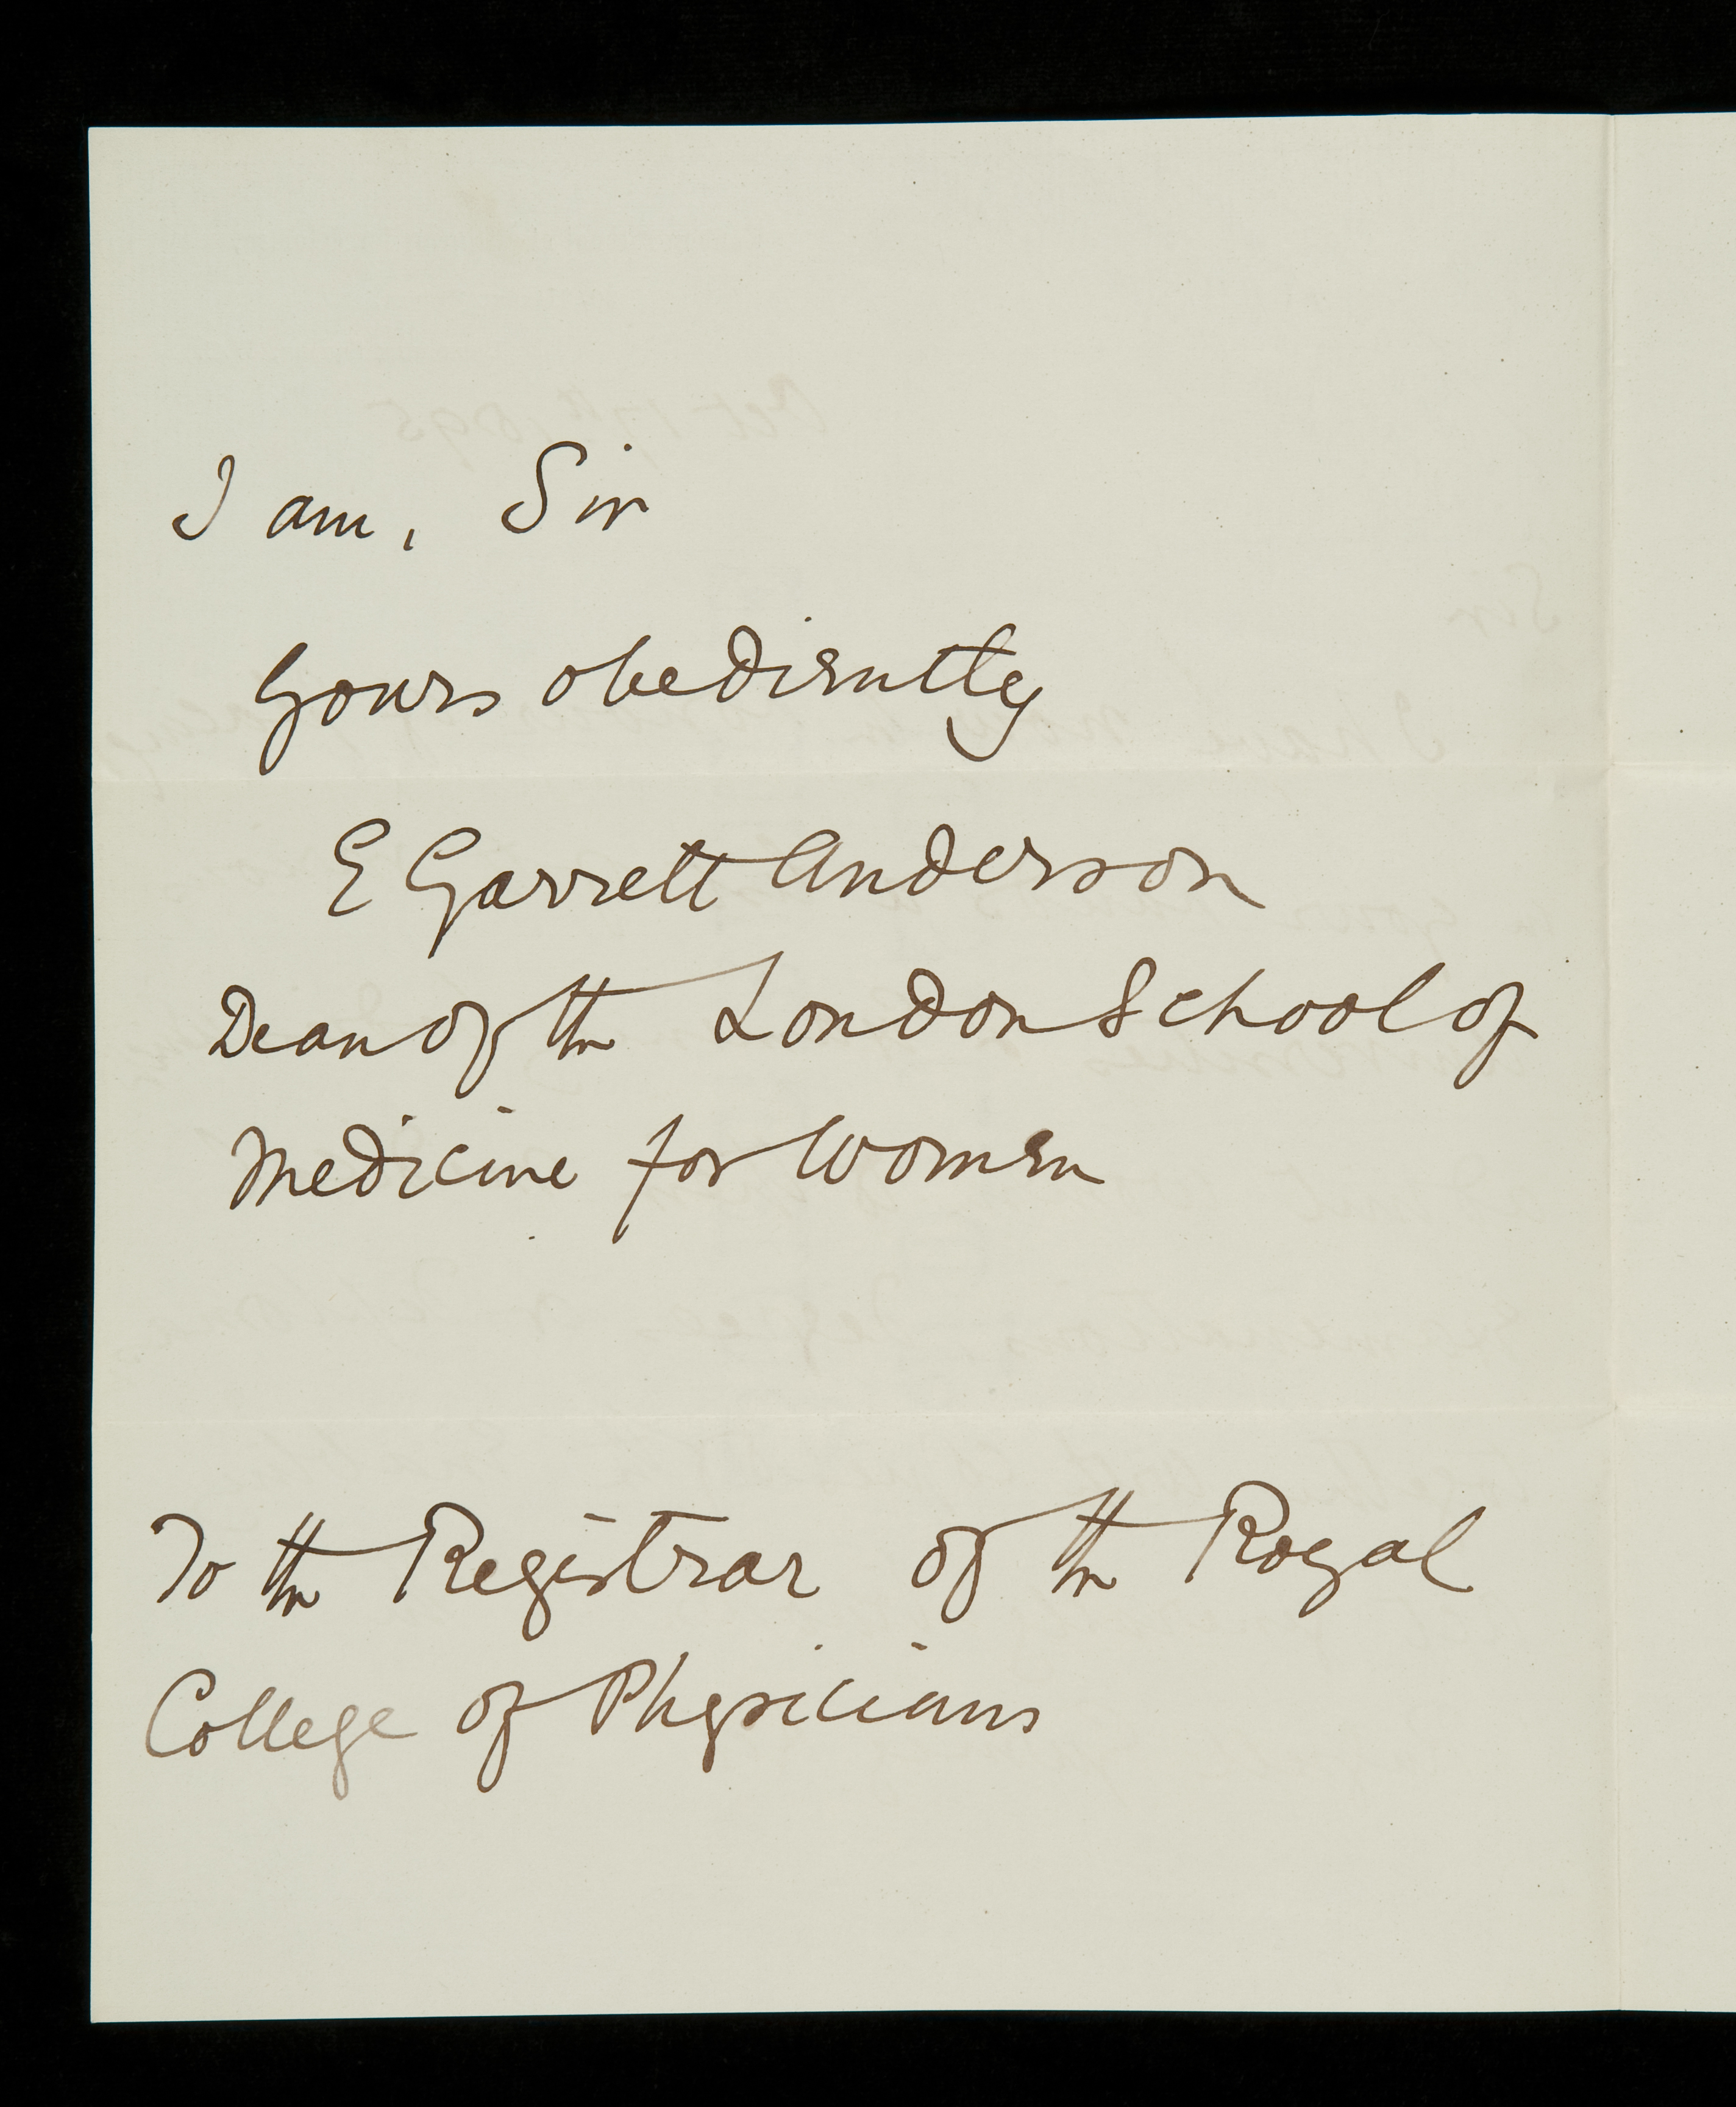 I am, Sir
Yours obediently
E Garrett Anderson
Dean of the London School of
Medicine for Women
To the Registrar of the Royal
College of Physicians